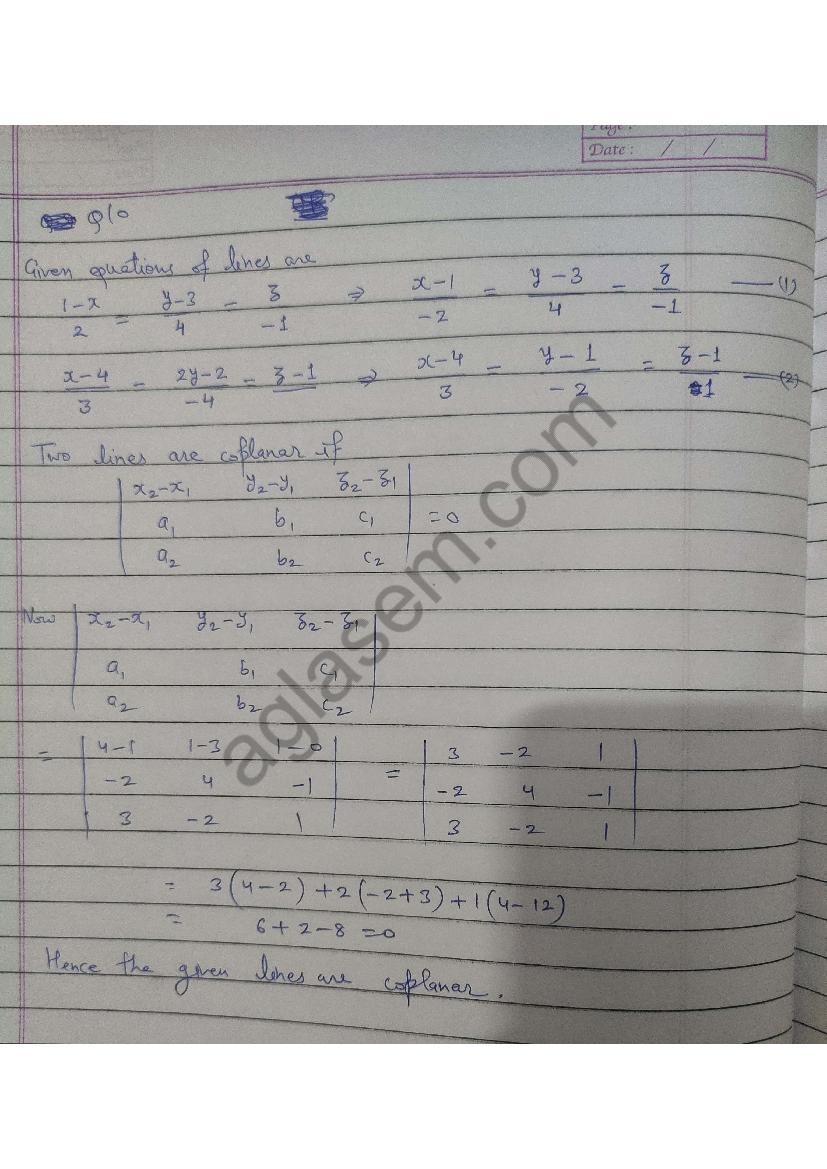 Page:
Date: / /
Q10
Given equations of lines are
1-x/2 = y-3/4 = z/-1 ⇒ x-1/-2 = y-3/4 = z/-1 —(1)
x-4/3 = 2y-2/-4 = z-1 ⇒ x-4/3 = y-1/-2 = z-1/1 —(2)
Two lines are coplanar if
| x₂-x₁ y₂-y₁ z₂-z₁ |
| a₁ b₁ c₁ | = 0
| a₂ b₂ c₂ |
Now | x₂-x₁ y₂-y₁ z₂-z₁ |
| a₁ b₁ c₁ |
| a₂ b₂ c₂ |
= | 4-1 1-3 1-0 | = | 3 -2 1 |
| -2 4 -1 | | -2 4 -1 |
| 3 -2 1 | | 3 -2 1 |
= 3(4-2) +2(-2+3) +1(4-12)
= 6+2-8 =0
Hence the given lines are coplanar.
aglasem.com